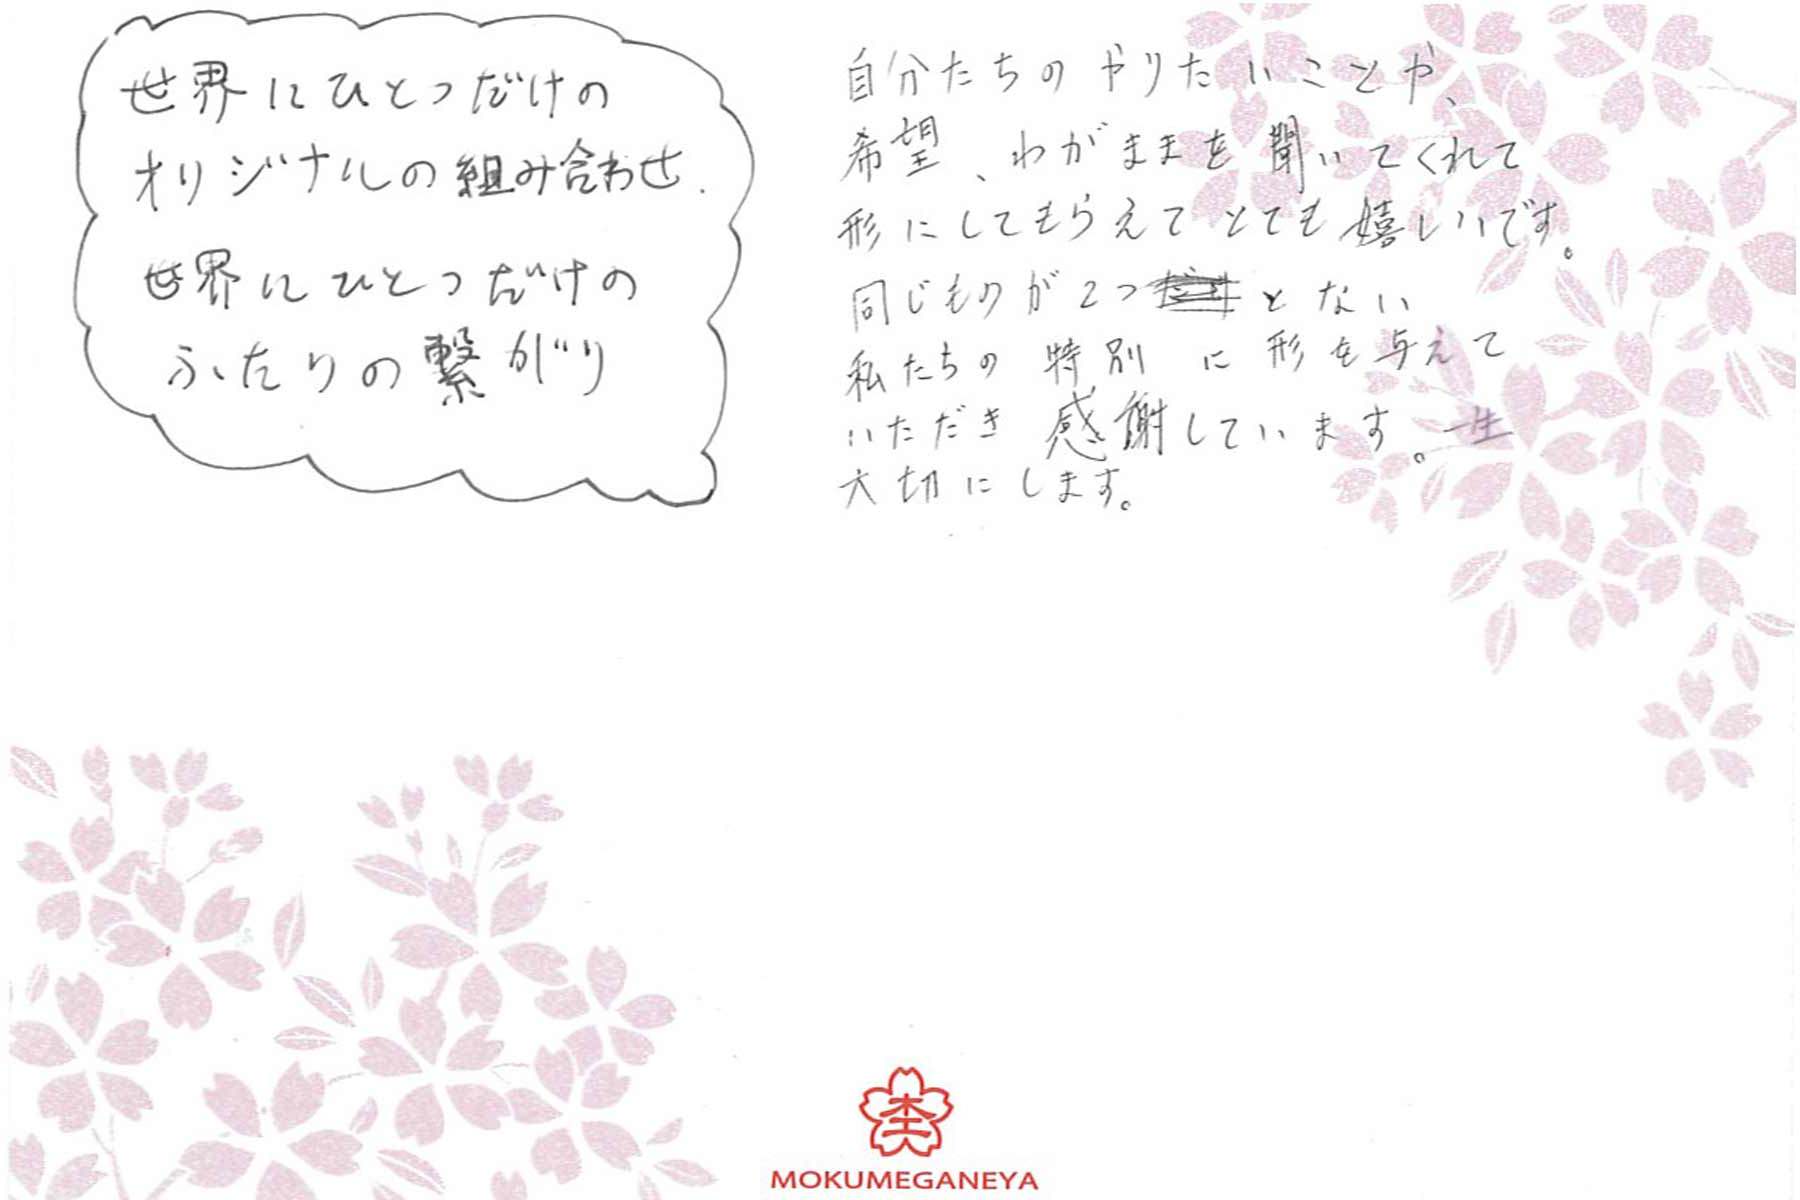 世界にひとつだけの
オリジナルの組み合わせ.
世界にひとつだけの
ふたりの繋がり
自分たちのやりたいことや、
希望、わがままを聞いてくれて
形にしてもらえてとても嬉しいです。
同じものが2つとない
私たちの特別に形を与えて
いただき感謝しています。一生
大切にします。
杢
MOKUMEGANEYA